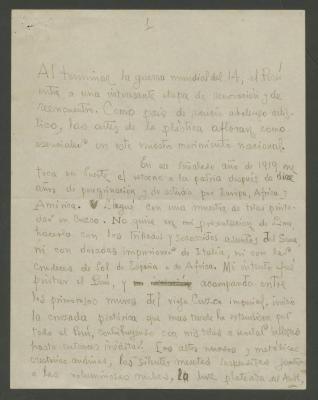 1
Al terminar la guerra mundial del 14, el Perú
entra a una interesante etapa de renovación y de
reencuentro. Como país de rancio abolengo artís-
tico, las artes de la plástica afloran como
esenciales en este nuestro movimiento nacional.
En ese señalado año de 1919, me
toca en suerte el retorno a la patria después de diez
años de peregrinación y de estudio por Europa, Africa y
América. Llegué con una muestra de telas pinta-
das en Cuzco. No quise en mi presentación de Lima
hacerlo con los trillados y socorridos asuntos del Sena
ni con doradas impresiones de Italia, ni con las
crudezas de Sol de España o de Africa. Mi intento fué
pintar el Perú, y acampando entre
los primorosos muros del viejo Cuzco inquieté, inicié
la cruzada pictórica que mas tarde la extendiera por
todo el Perú, contribuyendo con mis telas a revelar bellezas
hasta entonces inéditas. Los altos nevados y metálicas
cresterías andinas, las silentes mesetas
a las voluminosas nubes, la luz plateada del Ande,